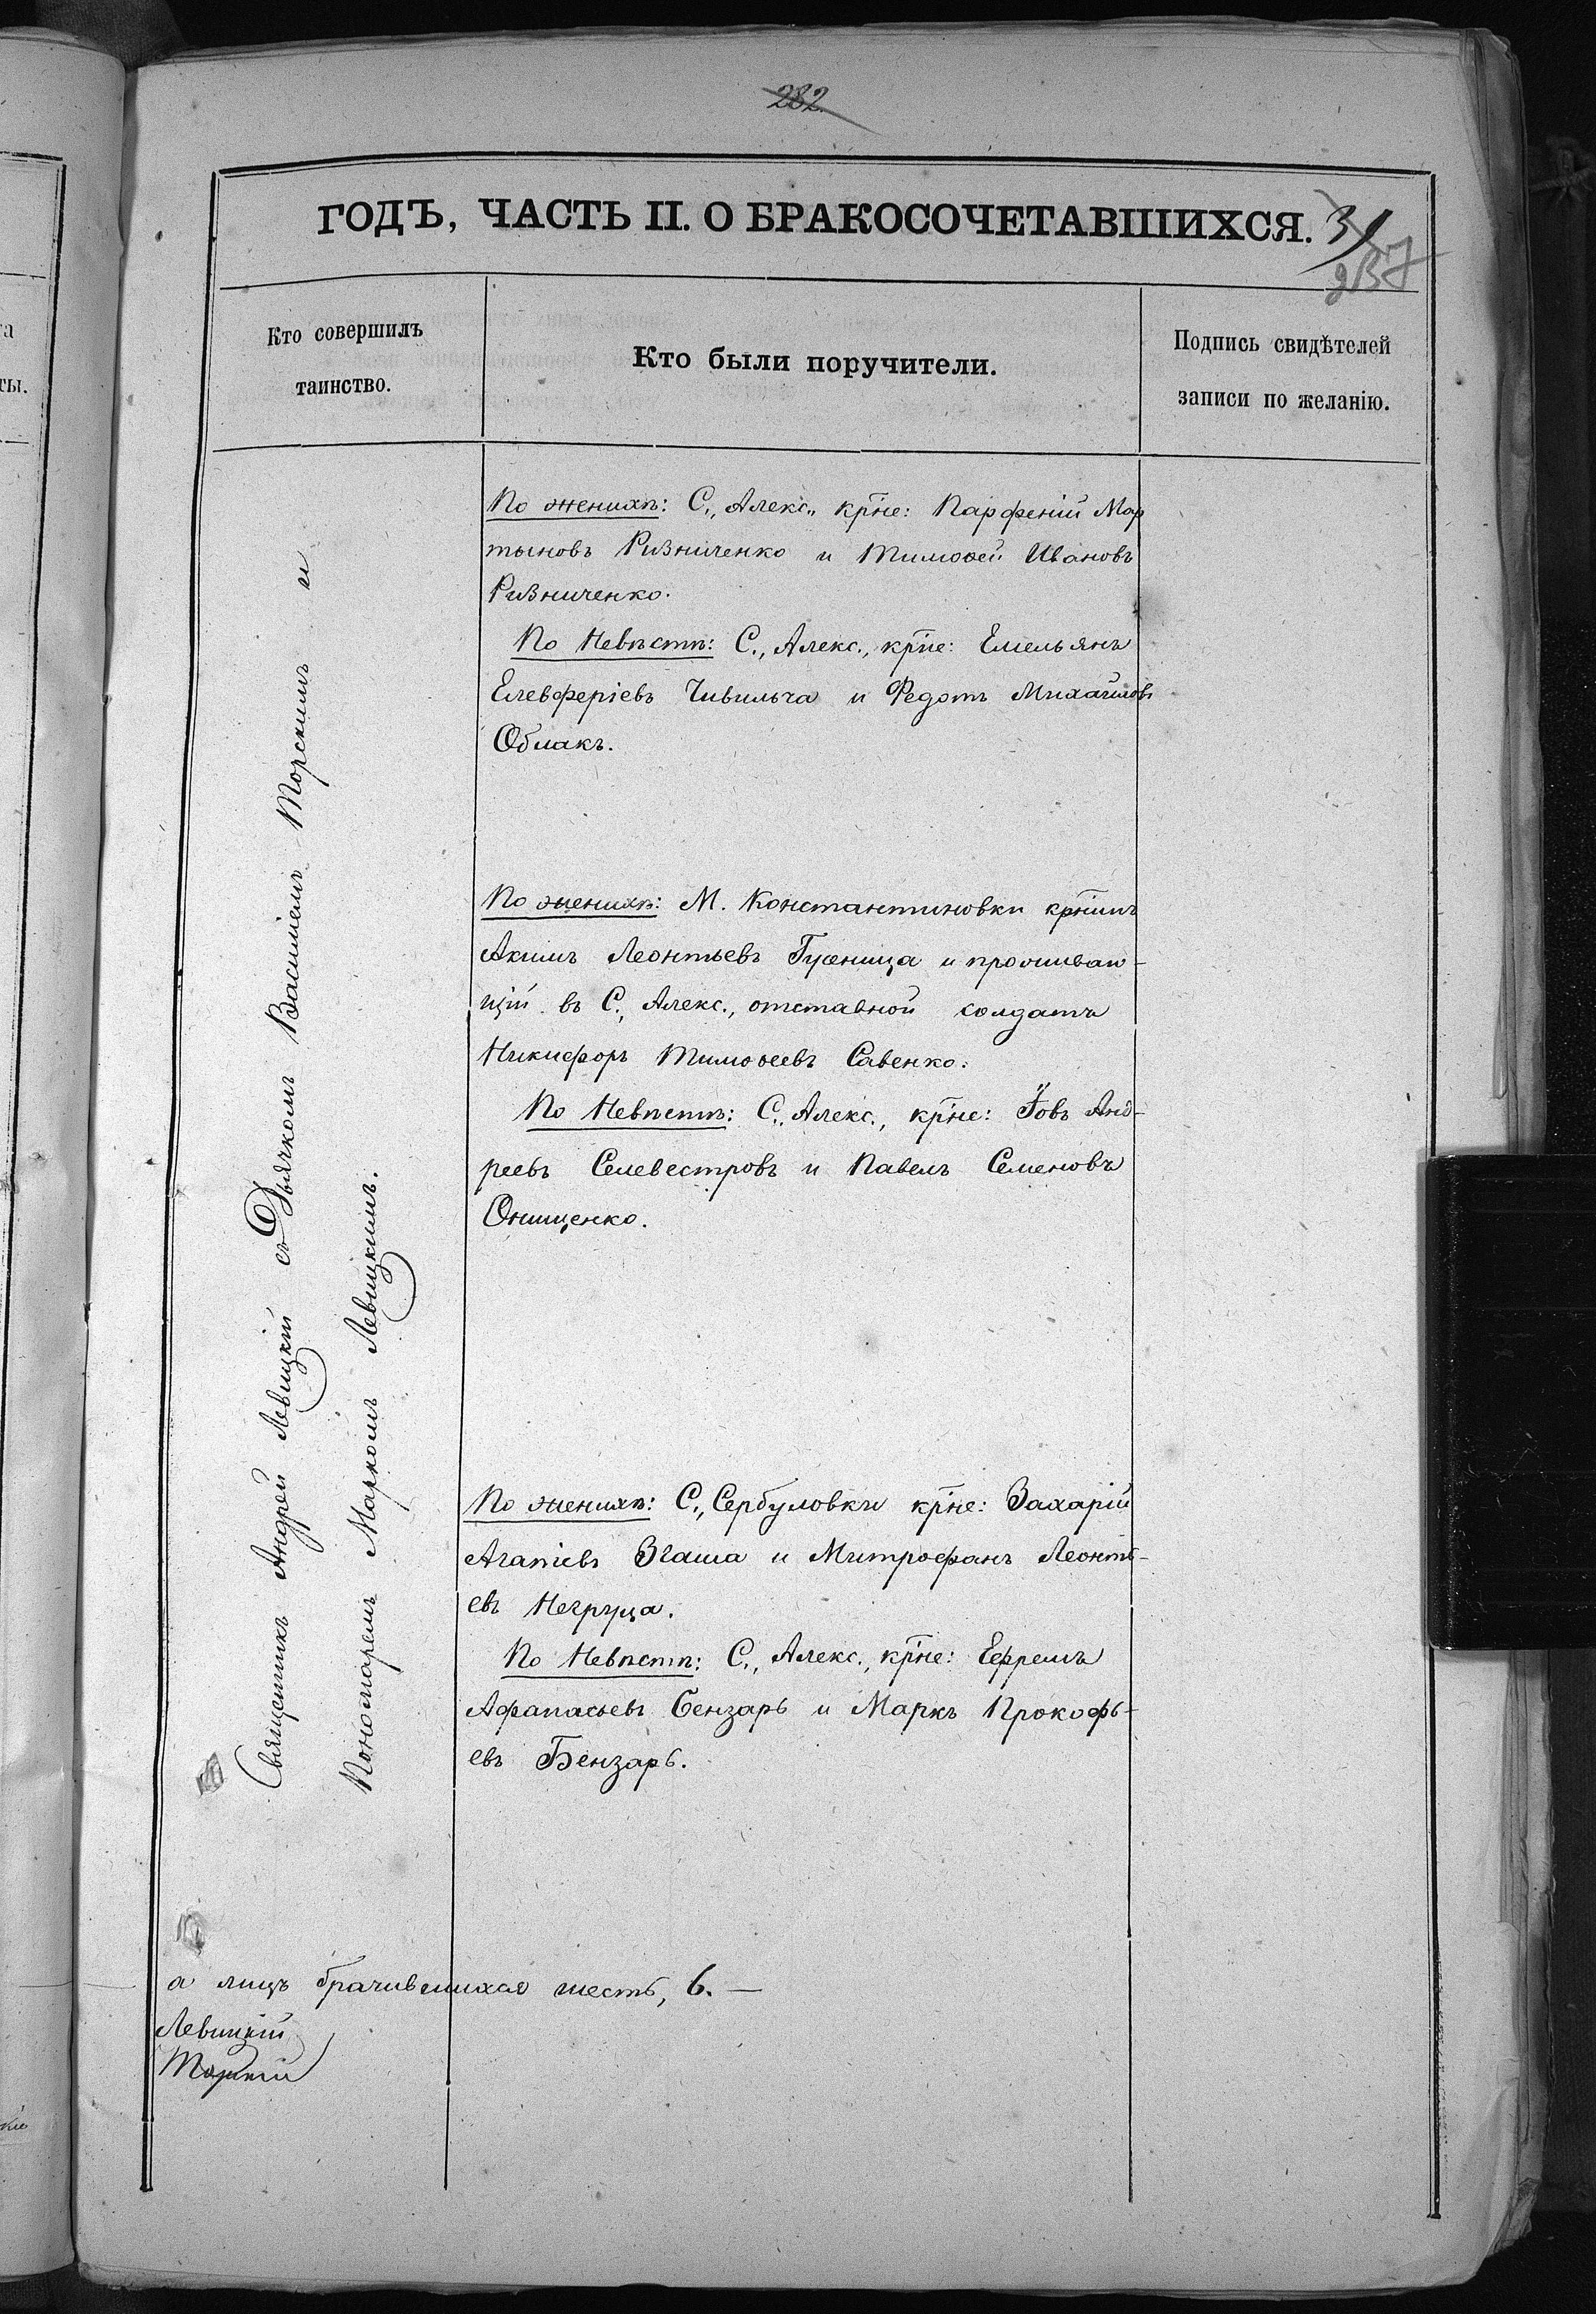 282
ГОДЪ, ЧАСТЬ II. О БРАКОСОЧЕТАВШИХСЯ.
31
237
Кто совершилъ
таинство.
Кто были поручители.
Подпись свидѣтелей
записи по желанію.
Священникъ Андрей Левицкій съ Дьячкомъ Василіемъ Торскимъ и
Пономаремъ Маркомъ Левицкимъ.
По женихѣ: С. „Алекс.„ кр͞не: Парфеній Мар
тыновъ Ризниченко и Тимоѳей Ивановъ
Ризниченко.
По Невѣстѣ: С., Алекс., кр͞не: Емельянъ
Елевферіевъ Чивильча и Федотъ Михайловъ
Облакъ.
По женихѣ: М. Константиновки кр͞нинъ
Акимъ Леонтьевъ Гусеница и проживаю-
щій въ С., Алекс., отставной солдатъ
Никифоръ Тимоѳеевъ Савенко.
По Невѣстѣ: С., Алекс., кр͞не: Іовъ Анд-
реевъ Селевестровъ и Павелъ Семеновъ
Онищенко.
По женихѣ: С., Сербуловки кр͞не: Захарій
Агапіевъ Згаша и Митрофанъ Леонть-
евъ Негруца.
По Невѣстѣ: С., Алекс., кр͞не: Ефремъ
Афанасьевъ Бензарь и Маркъ Прокофь-
евъ Бензарь.
а лицъ брачившихся шесть, 6. —
Левицкій
Торскій